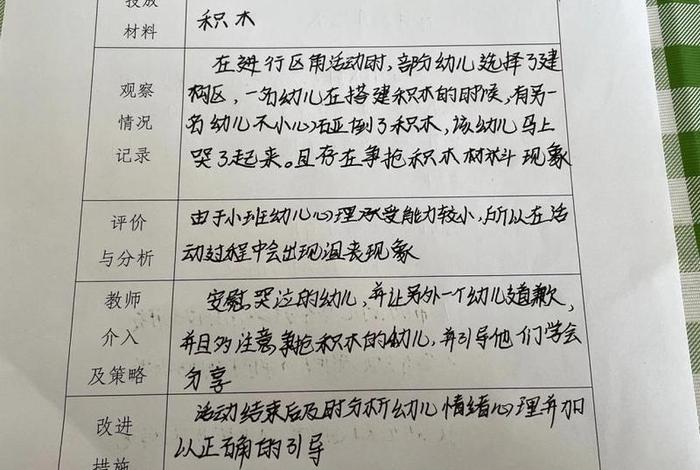 投放
材料
积木
观察
情况
记录
在进行区角活动时,部分幼儿选择了建
构区,一名幼儿在搭建积木的时候,有另一
名幼儿不小心碰倒了积木,该幼儿马上
哭了起来。且存在争抢积木材料现象
评价
与分析
由于小班幼儿心理承受能力较小,所以在活
动过程中会出现沮丧现象
教师
介入
及策略
安慰哭泣的幼儿,并让另外一个幼儿道歉,
并且多注意争抢积木的幼儿,并引导他们学会
分享
改进
措施
活动结束后及时分析幼儿情绪心理并加
以正确的引导